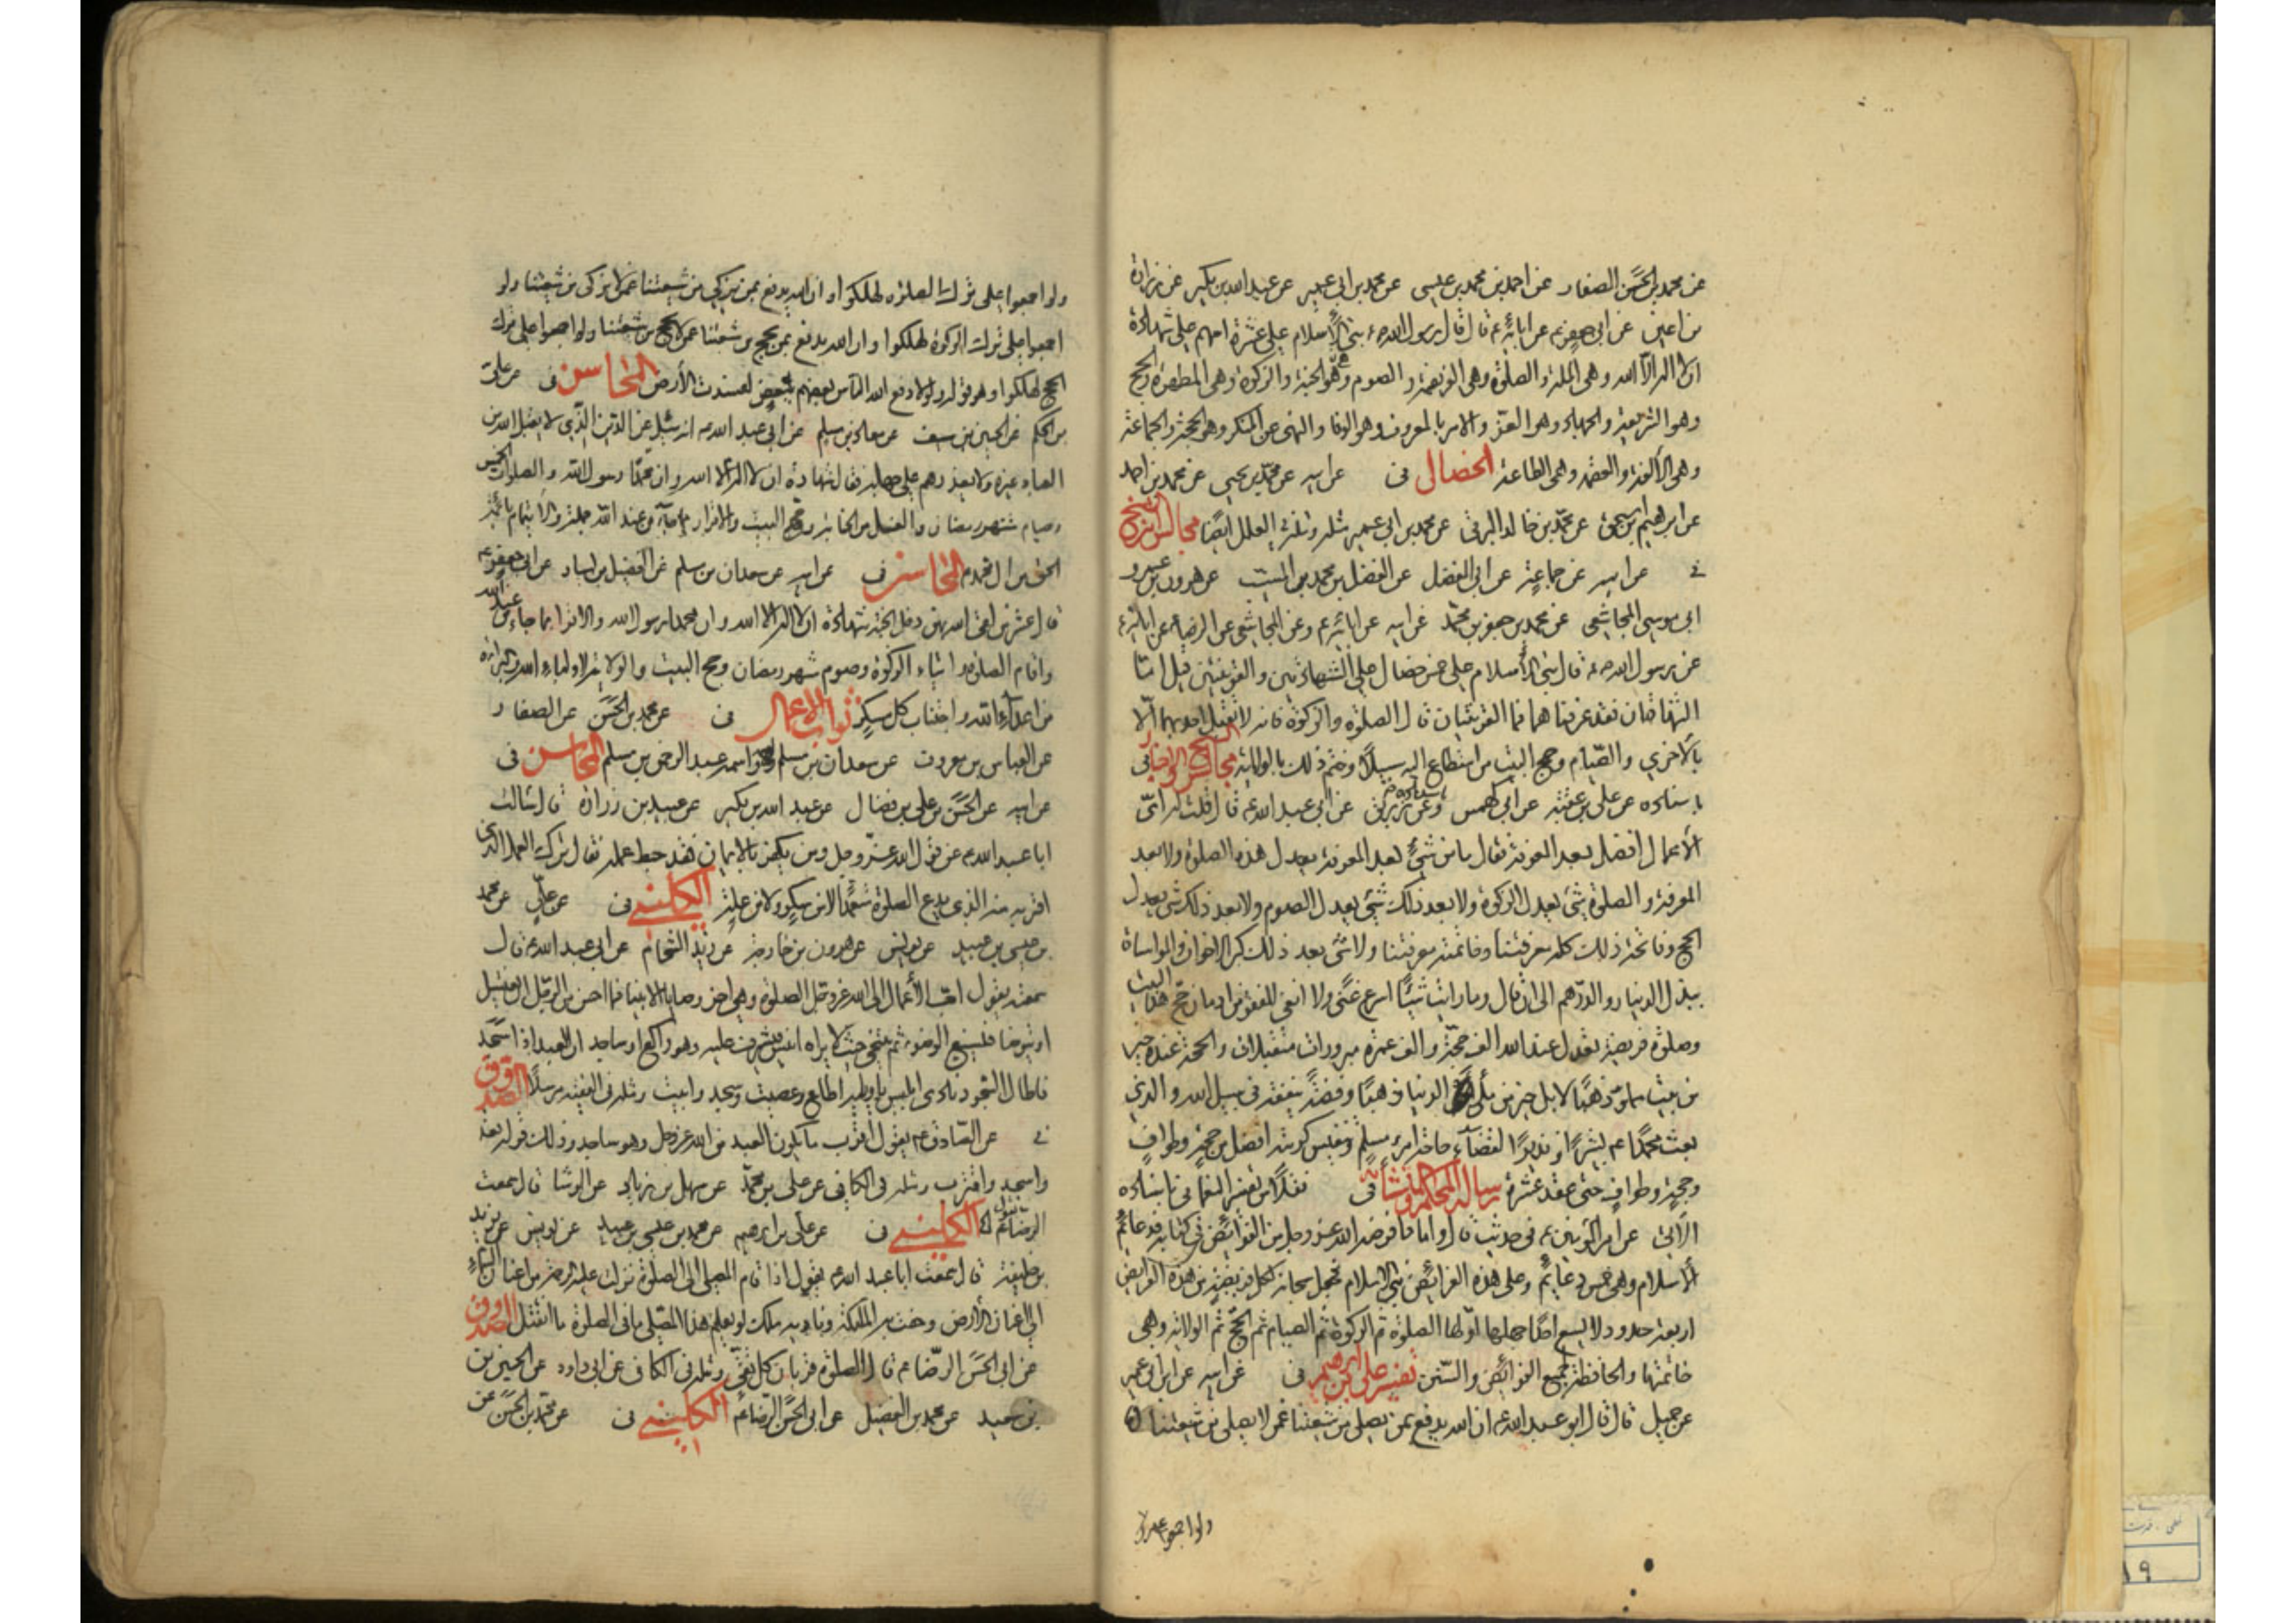 عن محمد بن الحسن الصفار عن احمد بن محمد بن عيسى عن محمد بن ابي عمير عن عبد الله بن بكير عن زرارة
بن اعين عن ابي جعفر ع عن ابائه ع قال قال رسول الله ص بني الاسلام على عشرة اسهم على شهادة
ان لا اله الا الله وهي الملة والصلوة وهي الفريضة والصوم وهو الجنة والزكوة وهي المطهرة والحج
وهو الشريعة والجهاد وهو العز والامر بالمعروف وهو الوفا والنهي عن المنكر وهو الحجة والجماعة
وهي الألفة والعصمة وهي الطاعة الخصال في عن ابيه عن محمد بن يحيى عن محمد بن احمد
عن ابرهيم بن اسحق عن محمد بن خالد البرقي عن محمد بن ابي عمير مثله ومثله في العلل ايضا مجالس ابن الشيخ
في عن ابيه عن جماعة عن ابي المفضل عن الفضل بن محمد بن المسيب عن هرون بن عمرو
ابي موسى المجاشعي عن محمد بن جعفر بن محمد عن ابيه عن ابائه ع وعن المجاشعي عن الرضا ع عن ابائه ع
عن رسول الله ص قال بني الاسلام على خمس خصال على الشهادتين والقرينتين قيل له اما
الشهادتان فقد عرفناهما فما القرينتان قال الصلوة والزكوة فانه لا تقبل احديهما الا
بالاخرى والصيام وحج البيت من استطاع اليه سبيلا وختم ذلك بالولاية مجالس الشيخ والاخبار في
باسناده عن علي بن عقبه عن ابي كهمس وعن زريق عن ابي عبد الله ع قال قلت له اي
الأعمال افضل بعد المعرفة فقال ما من شيء بعد المعرفة يعدل هذه الصلوة ولا بعد
المعرفة والصلوة شيء يعدل الزكوة ولا بعد ذلك شيء يعدل الصوم ولا بعد ذلك شيء يعدل
الحج وفاتحة ذلك كله معرفتنا وخاتمته معرفتنا ولا شيء بعد ذلك كبر الاخوان والمواساة
ببذل الدينار والدرهم الى ان قال وما رايت شيئا اسرع غنى ولا انفى للفقر من ادمان حج هذا البيت
وصلوة فريضة تعدل عند الله الف حجة والف عمرة مبرورات متقبلات والحجة عنده خير
من بيت مملو ذهبا لا بل خير من ملئ الدنيا ذهبا وفضة ينفقه في سبيل الله والذي
بعث محمدا ص بشيرا ونذيرا لقضاء حاجة امرء مسلم وتنفيس كربته افضل من حجة وطواف
وحجة وطواف حتى عقد عشرة رسالة المحكم والمتشابه في نقلا من تفسير النعماني باسناده
الاتي عن امير المؤمنين ع في حديث قال واما ما فرضه الله عز وجل من الفرائض في كتابه فدعائم
الاسلام وهي خمس دعائم وعلى هذه الفرائض بني الاسلام فجعل سبحانه لكل فريضة من هذه الفرايض
اربعة حدود لا يسع احدا جهلها اولها الصلوة ثم الزكوة ثم الصيام ثم الحج ثم الولاية وهي
خاتمتها والحافظة لجميع الفرائض والسنن تفسير علي بن ابرهيم في عن ابيه عن ابن ابي عمير
عن جميل قال قال ابو عبد الله ع ان الله يدفع بمن يصلي من شيعتنا عمن لا يصلي من شيعتنا
ولو اجمعوا على
ولو اجمعوا على ترك الصلوة لهلكوا وان الله يدفع بمن يزكي من شيعتنا عمن لا يزكي من شيعتنا ولو
اجمعوا على ترك الزكوة لهلكوا وان الله يدفع بمن يحج من شيعتنا عمن لا يحج من شيعتنا ولو اجمعوا على ترك
الحج لهلكوا وهو قوله ولولا دفع الله الناس بعضهم ببعض لفسدت الأرض المحاسن في عن علي
بن الحكم عن الحسين بن سيف عن معاذ بن مسلم عن ابي عبد الله ع انه سئل عن الدين الذي لا يقبل الله من
العباد غيره ولا يعذرهم على جهله فقال شهادة ان لا اله الا الله وان محمدا رسول الله والصلوات الخمس
وصيام شهر رمضان والغسل من الجنابة وحج البيت والاقرار بما جاء من عند الله جملة والايتمام بائمة
الحق من ال محمد ص المحاسن في عن ابيه عن سعدان بن مسلم عن الفضيل بن يسار عن ابي جعفر ع
قال عشر من لقي الله بهن دخل الجنة شهادة ان لا اله الا الله وان محمدا رسول الله والاقرار بما جاء من عند الله
واقام الصلوة وايتاء الزكوة وصوم شهر رمضان وحج البيت والولاية لاولياء الله والبرائة
من اعداء الله واجتناب كل مسكر ثواب الاعمال في عن محمد بن الحسن عن الصفار
عن العباس بن معروف عن سعدان بن مسلم واسمه عبد الرحمن بن مسلم المحاسن في
عن ابيه عن الحسن بن علي بن فضال عن عبد الله بن بكير عن عبيد بن زرارة قال سالت
ابا عبد الله ع عن قول الله عز وجل ومن يكفر بالايمان فقد حبط عمله فقال ترك العمل الذي
اقر به منه الذي يدع الصلوة متعمدا لا من سكر ولا من علة الكليني في عن علي عن محمد
بن عيسى بن عبيد عن يونس عن هرون بن خارجة عن زيد الشحام عن ابي عبد الله ع قال
سمعته يقول احب الأعمال الى الله عز وجل الصلوة وهي اخر وصايا الانبيا فما احسن من الرجل ان يغتسل
او يتوضا فيسبغ الوضوء ثم يتنحى حيث لا يراه انيس فيشرف عليه وهو راكع او ساجد ان العبد اذا سجد
فاطال السجود نادى ابليس يا ويله اطاع وعصيت وسجد وابيت ومثله في الفقيه مرسلا الصدوق
في عن الصادق ع يقول اقرب ما يكون العبد من الله عز وجل وهو ساجد وذلك قوله تع
واسجد واقترب ومثله في الكافي عن علي بن محمد عن سهل بن زياد عن الوشا قال سمعت
الرضا ع يقول الكليني في عن علي بن ابرهيم عن محمد بن عيسى بن عبيد عن يونس عن يزيد
بن خليفة قال سمعت ابا عبد الله ع يقول اذا قام المصلي الى الصلوة نزلت عليه الرحمة من اعنان السماء
الى اعنان الأرض وحفت به الملئكة وناداه ملك لو يعلم هذا المصلي ما في الصلوة ما انفتل الصدوق
عن ابي الحسن الرضا ع قال الصلوة قربان كل تقي ومثله في الكافي عن ابي داود عن الحسين بن
بن سعيد عن محمد بن الفضيل عن ابي الحسن الرضا ع الكليني في عن محمد بن الحسن عن
١٩